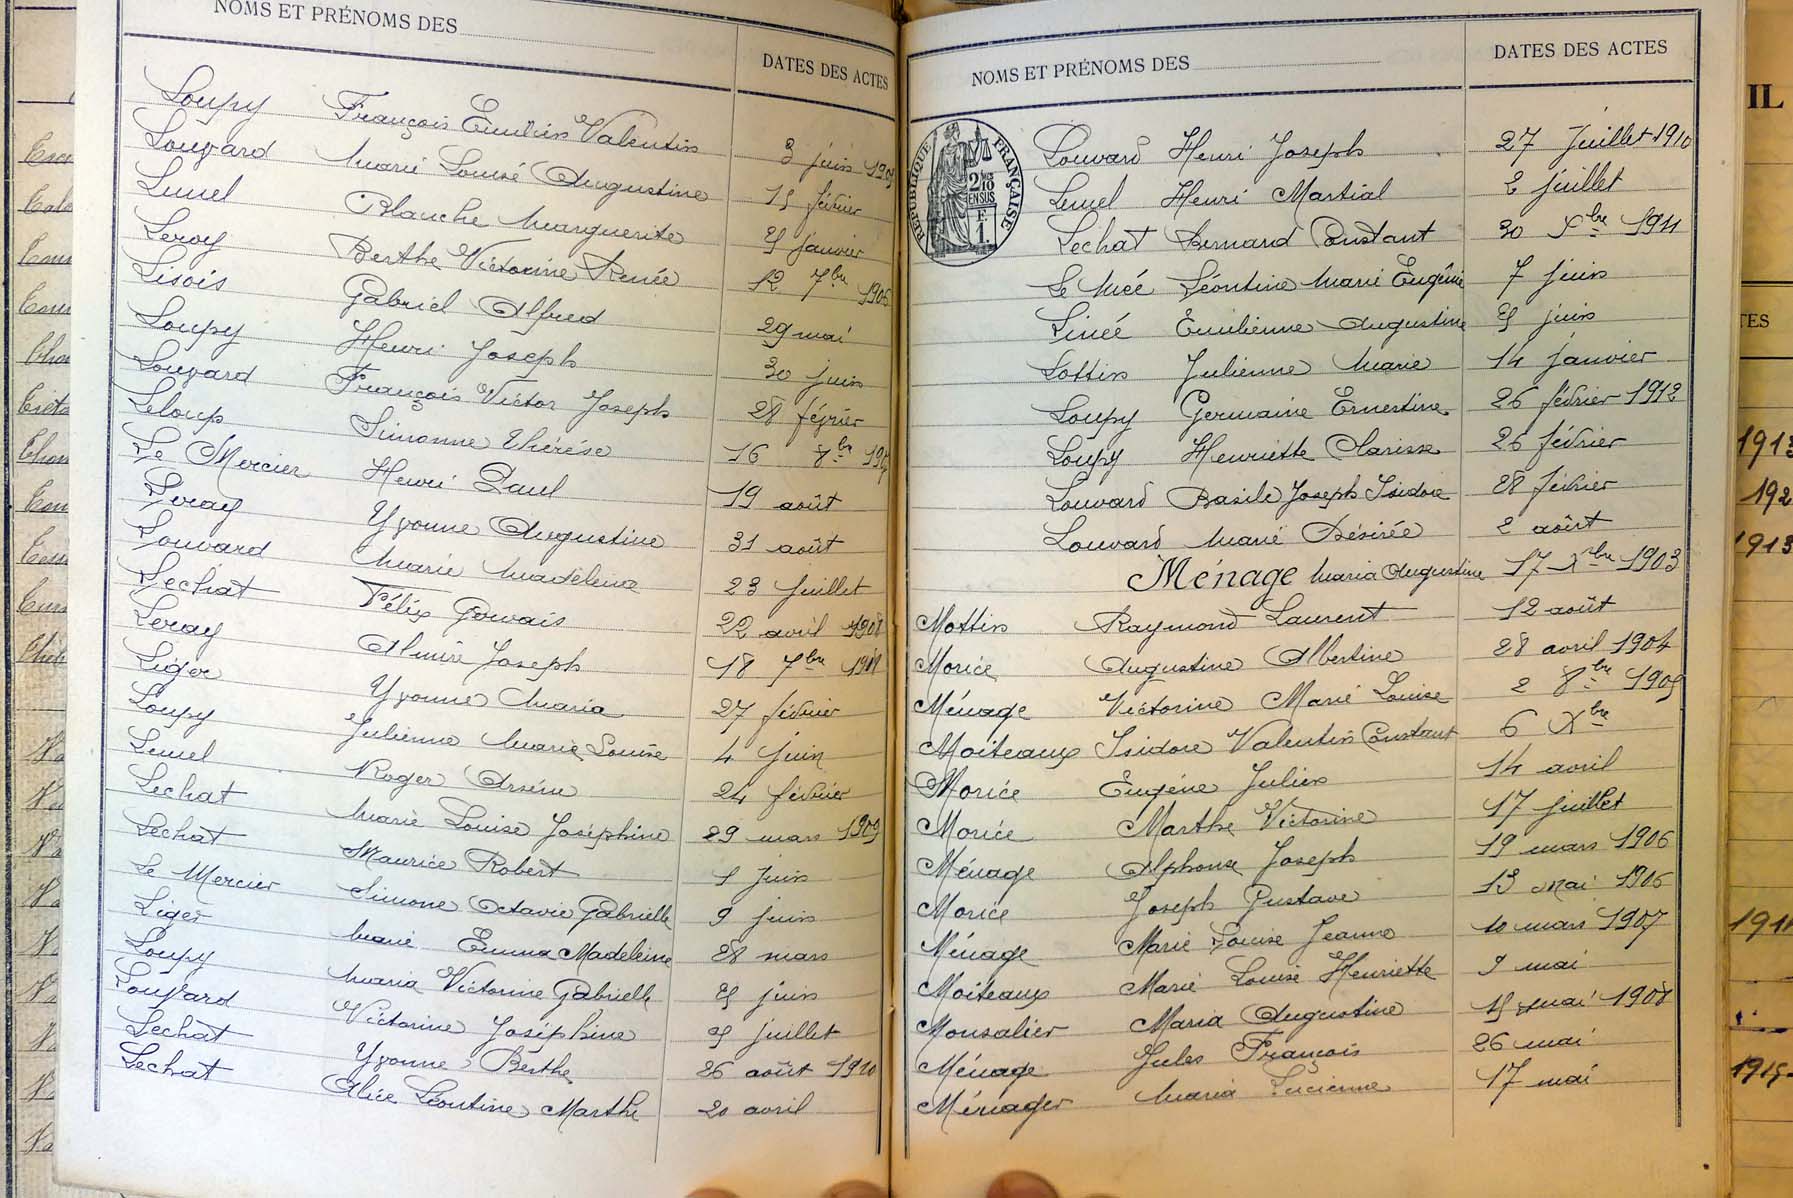 NOMS ET PRÉNOMS DES
DATES DES ACTES
Loupy François Emilien Valentin 3 juin 1905
Louvard Marie Louise Augustine 15 février
Lemel Blanche Marguerite 25 janvier
Leroy Berthe Victorine Renée 12 7bre 1906
Lisois Gabriel Alfred 29 mai
Loupy Henri Joseph 30 juin
Louvard François Victor Joseph 28 février
Leloup Simonne Thérèse 16 8bre 1907
Le Mercier Henri Paul 19 août
Leray Yvonne Augustine 31 août
Louvard Marie Madeleine 23 juillet
Lechat Félix Gervais 22 avril 1908
Leray Aimée Joseph 18 7bre
Liger Yvonne Maria 27 février
Loupy Julienne Marie Louise 4 juin
Lemel Roger Arsène 24 février
Lechat Marie Louise Joséphine 29 mars 1909
Lechat Maurice Robert 1 juin
Le Mercier Simone Octavie Gabrielle 9 juin
Liger Marie Emma Madeleine 28 mars
Loupy Maria Victorine Gabrielle 25 juin
Louvard Victorine Joséphine 25 juillet
Lechat Yvonne Berthe 26 août 1910
Lechat Alice Léontine Marthe 20 avril
NOMS ET PRÉNOMS DES
DATES DES ACTES
RÉPUBLIQUE FRANÇAISE
2/10
EN SUS
F.
1.
Louvard Henri Joseph 27 juillet 1910
Lemel Henri Martial 2 juillet
Lechat Bernard Constant 30 Xbre 1911
Le Mée Léontine Marie Eugénie 7 juin
Linée Emilienne Augustine 25 juin
Lottin Julienne Marie 14 janvier
Loupy Germaine Ernestine 26 février 1912
Loupy Henriette Clarisse 26 février
Louvard Basile Joseph Isidore 28 février
Louvard Marie Désirée 2 août
Ménage Maria Augustine 17 Xbre 1903
Mottin Raymond Laurent 12 août
Morice Augustine Albertine 28 avril 1904
Ménage Victorine Marie Louise 2 8bre 1905
Moiteaux Isidore Valentin Constant 6 Xbre
Morice Eugène Julien 14 avril
Morice Marthe Victorine 17 juillet
Ménage Alphonse Joseph 19 mars 1906
Morice Joseph Gustave 13 mai 1906
Ménage Marie Louise Jeanne 10 mars 1907
Moiteaux Marie Louise Henriette 9 mai
Monsalier Maria Augustine 15 mai 1908
Ménage Jules François 26 mai
Ménager Maria Lucienne 17 mai
IL
TES
1913
192
1913
191
1915